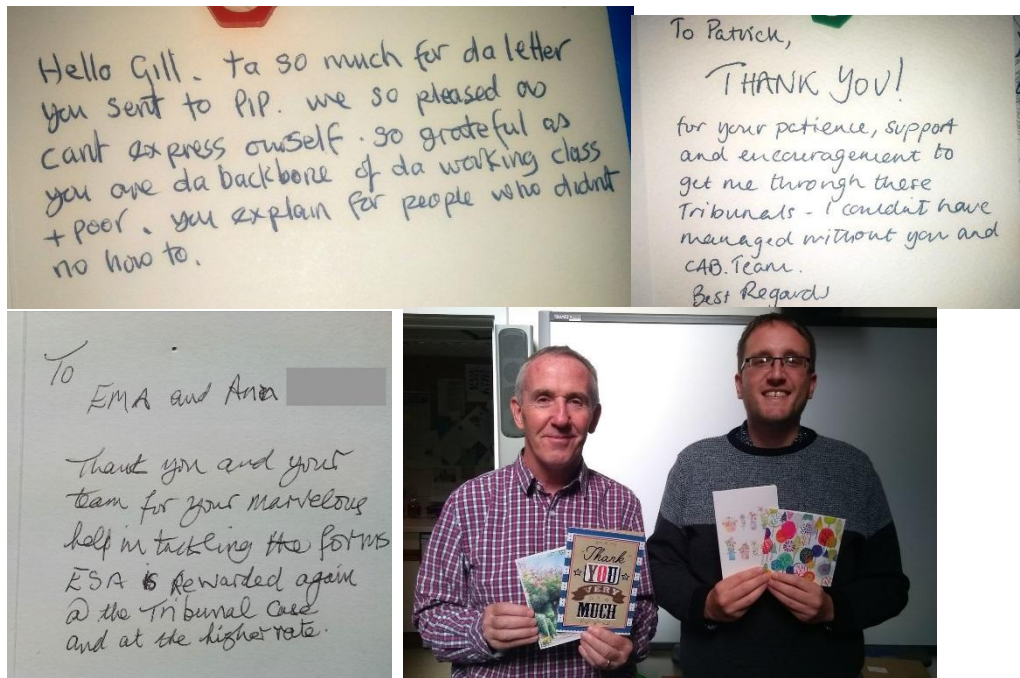 Hello Gill. ta so much for da letter
you sent to PIP. we so pleased as
cant express ourself. so grateful as
you are da backbone of da working class
+ poor. you explain for people who didnt
no how to.
To Patrick,
THANK YOU!
for your patience, support
and encouragement to
get me through these
Tribunals - I couldn't have
managed without you and
CAB. Team.
Best Regards
To
EMA and Ana
Thank you and your
team for your marvelous
help in tackling the forms
ESA is Rewarded again
@ the Tribunal Case
and at the higher rate.
Thank
YOU
VERY
MUCH